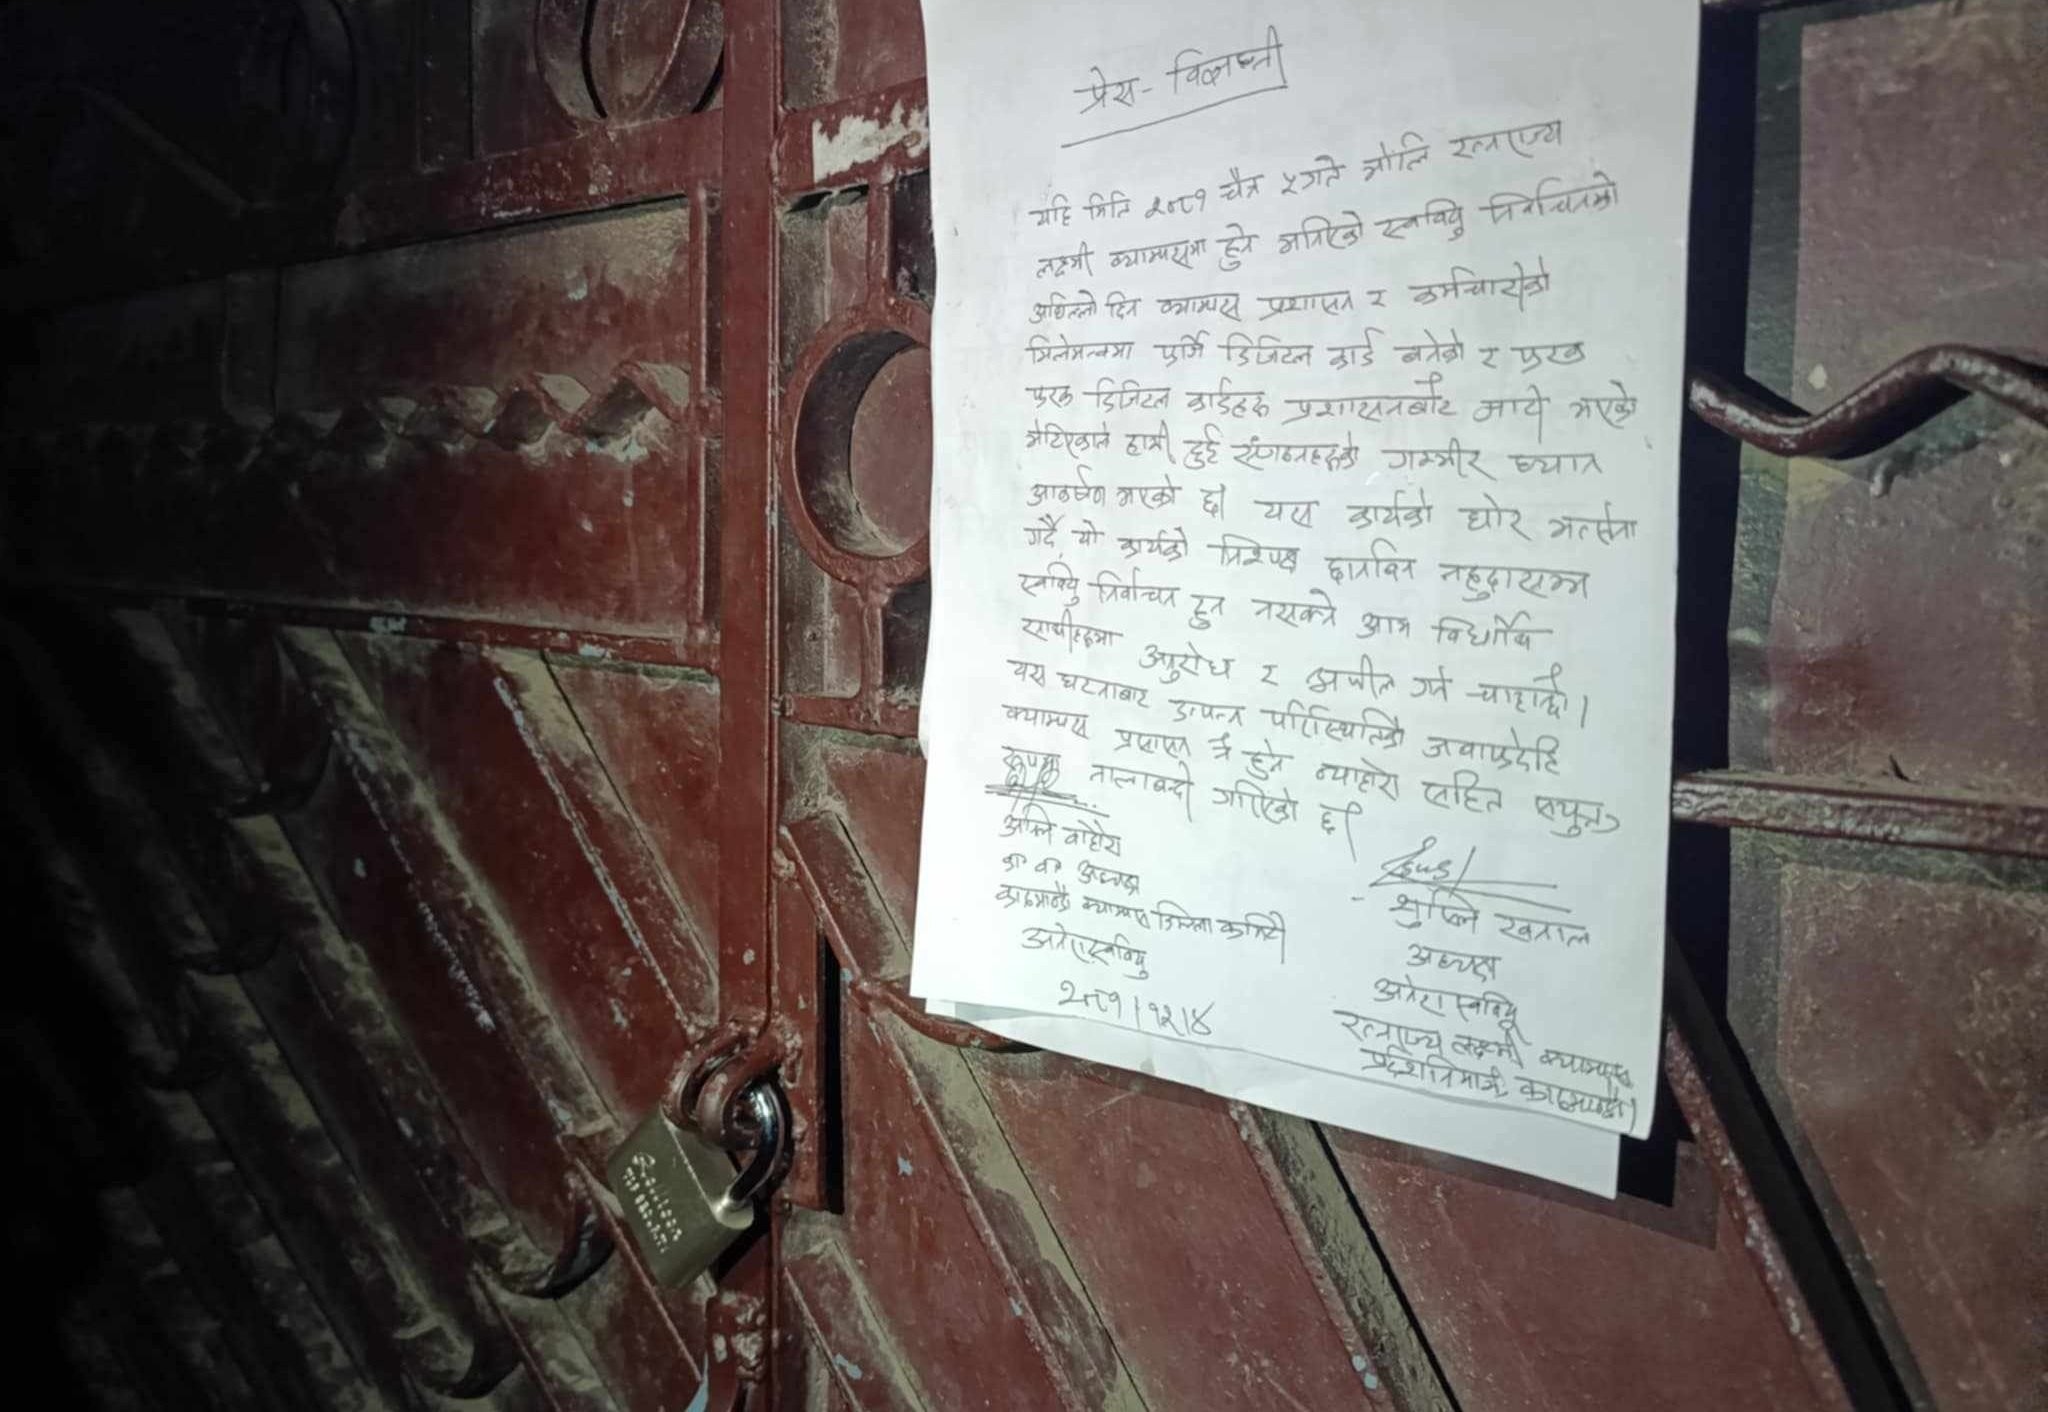 प्रेस - विज्ञप्ती
यहि मिति २०८१ चैत्र ५ गते भोलि रत्नराज्य
लक्ष्मी क्याम्पसमा हुने भनिएको स्ववियु निर्वाचनको
अघिल्लो दिन क्याम्पस प्रशासन र कर्मचारीको
मिलेमत्वमा फर्जि डिजिटल कार्ड बनेको र फरक
फरक डिजिटल कार्डहरू प्रशासनबाटै जारी भएको
भेटिएकाले हामी दुई संगठनहरूको गम्भीर ध्यान
आकर्षण भएको छ। यस कार्यको घोर भर्त्सना
गर्दै, यो कार्यको निश्पक्ष छानविन नहुदासम्म
स्ववियु निर्वाचन हुन नसक्ने आम विद्यार्थि
साथीहरूमा अनुरोध र अपील गर्न चाहान्छौ।
यस घटनाबाट उत्पन्न परिस्थितिको जवाफदेहि
क्याम्पस प्रसासन नै हुने व्याहोरा सहित संयुक्त
रूपमा तालाबन्दी गरिएको छ।
अध्यक्ष
काठमाडौं क्याम्पस जिल्ला कमिटी
अनेरास्ववियु
२०८१।१२।४
खनाल
अध्यक्ष
अनेरास्ववियु
रत्नराज्य लक्ष्मी क्याम्पस
प्रदर्शनीमार्ग, काठमाण्डौ।